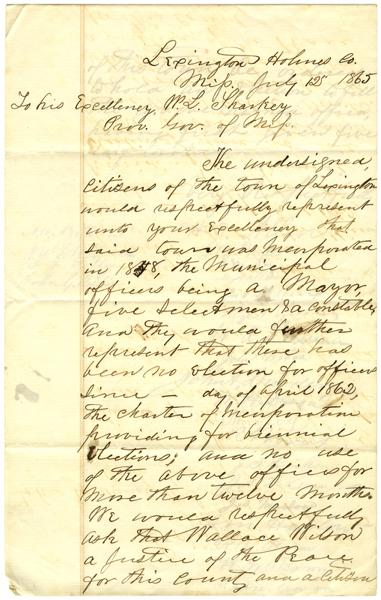 Lexington Holmes Co.
Miss. July 12 1865
To his Excellency W.L. Sharkey
Prov. Gov. of Miss.
The undersigned
Citizens of the town of Lexington
would respectfully represent
unto your Excellency that
said town was Incorporated
in 18 8, the Municipal
officers being a Mayor,
five Selectmen & a Constable,
And they would further
represent that there has
been no Election for officers
since — day of April 1862,
the Charter of Incorporation
providing for biennial
Elections; and no use
of the above offices for
More than twelve Months.
We would respectfully
ask that Wallace Wilson
a Justice of the Peace
for this County and a Citizen